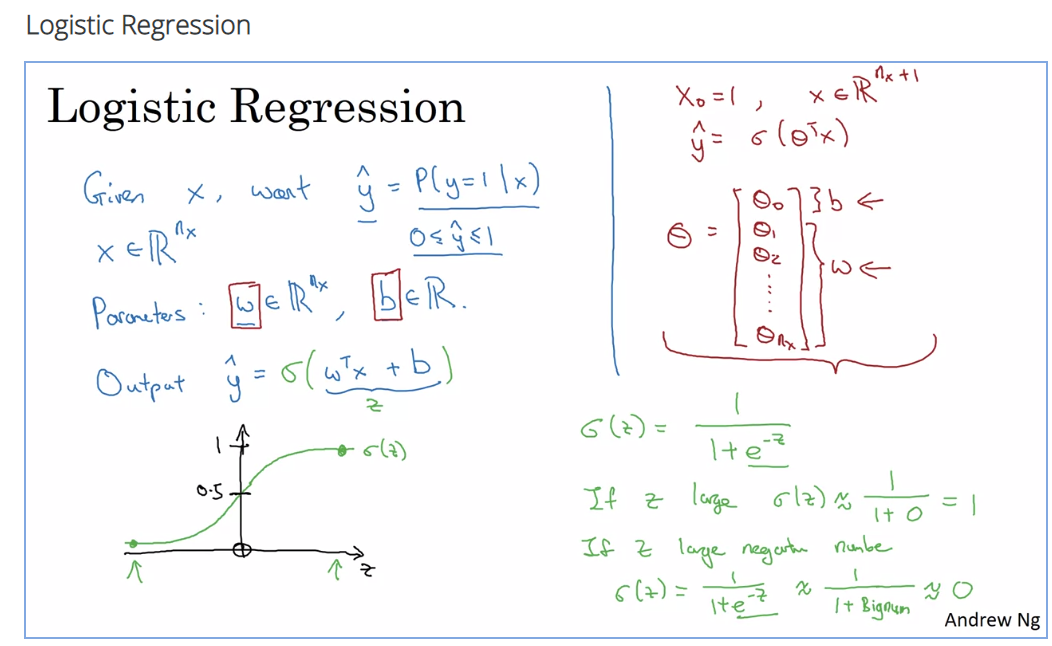 Logistic Regression
Logistic Regression
Given x, want ŷ = P(y=1|x)
x ∈ ℝⁿˣ
0 ≤ ŷ ≤ 1
Parameters: w ∈ ℝⁿˣ, b ∈ ℝ.
Output ŷ = σ(wᵀx + b)
z
1
σ(z)
0.5
z
x₀ = 1, x ∈ ℝⁿˣ⁺¹
ŷ = σ(θᵀx)
θ = [θ₀ } b ←
θ₁
θ₂ } w ←
⋮
θₙₓ]
σ(z) = 1/(1 + e⁻ᶻ)
If z large σ(z) ≈ 1/(1 + 0) = 1
If z large negative number
σ(z) = 1/(1 + e⁻ᶻ) ≈ 1/(1 + Bignum) ≈ 0
Andrew Ng